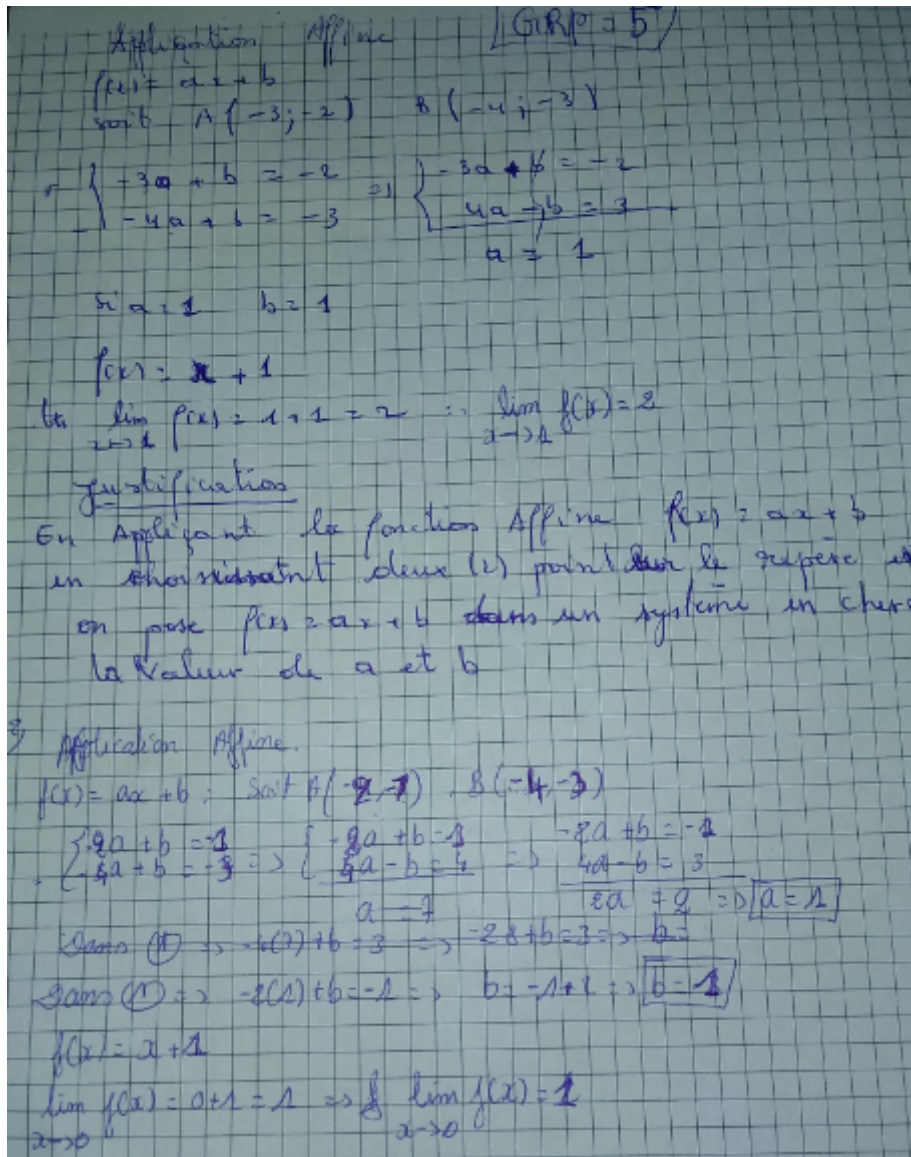 Application Affine GRP = 5
f(x) = ax + b
soit A (-3; -2) B (-4; -3)
{ -3a + b = -2 => { -3a + b = -2
-4a + b = -3 4a - b = 3
a = 1
Si a = 1 b = 1
f(x) = x + 1
lim f(x) = 1+1 = 2 ∴ lim f(x) = 2
x→1 x→1
Justification
En Appliqant la fonction Affine f(x) = ax + b
en deux (2) point sur le repère
on pose f(x) = ax + b dans un système en cherc
la Valeur de a et b
2) Application Affine.
f(x) = ax + b : Soit A (-2, -1) B (-4, -3)
{ -2a + b = -1 => { -2a + b = 1 => -2a + b = -1
-4a + b = -3 4a - b = 4 4a - b = 3
a = 7 2a = 2 => a = 1
Dans (1) => -4(7) + b = 3 => -28 + b = 3 => b =
Dans (1) => -2(1) + b = -1 => b = -1 + 2 => b = 1
f(x) = x + 1
lim f(x) = 0+1 = 1 => lim f(x) = 1
x→0 x→0